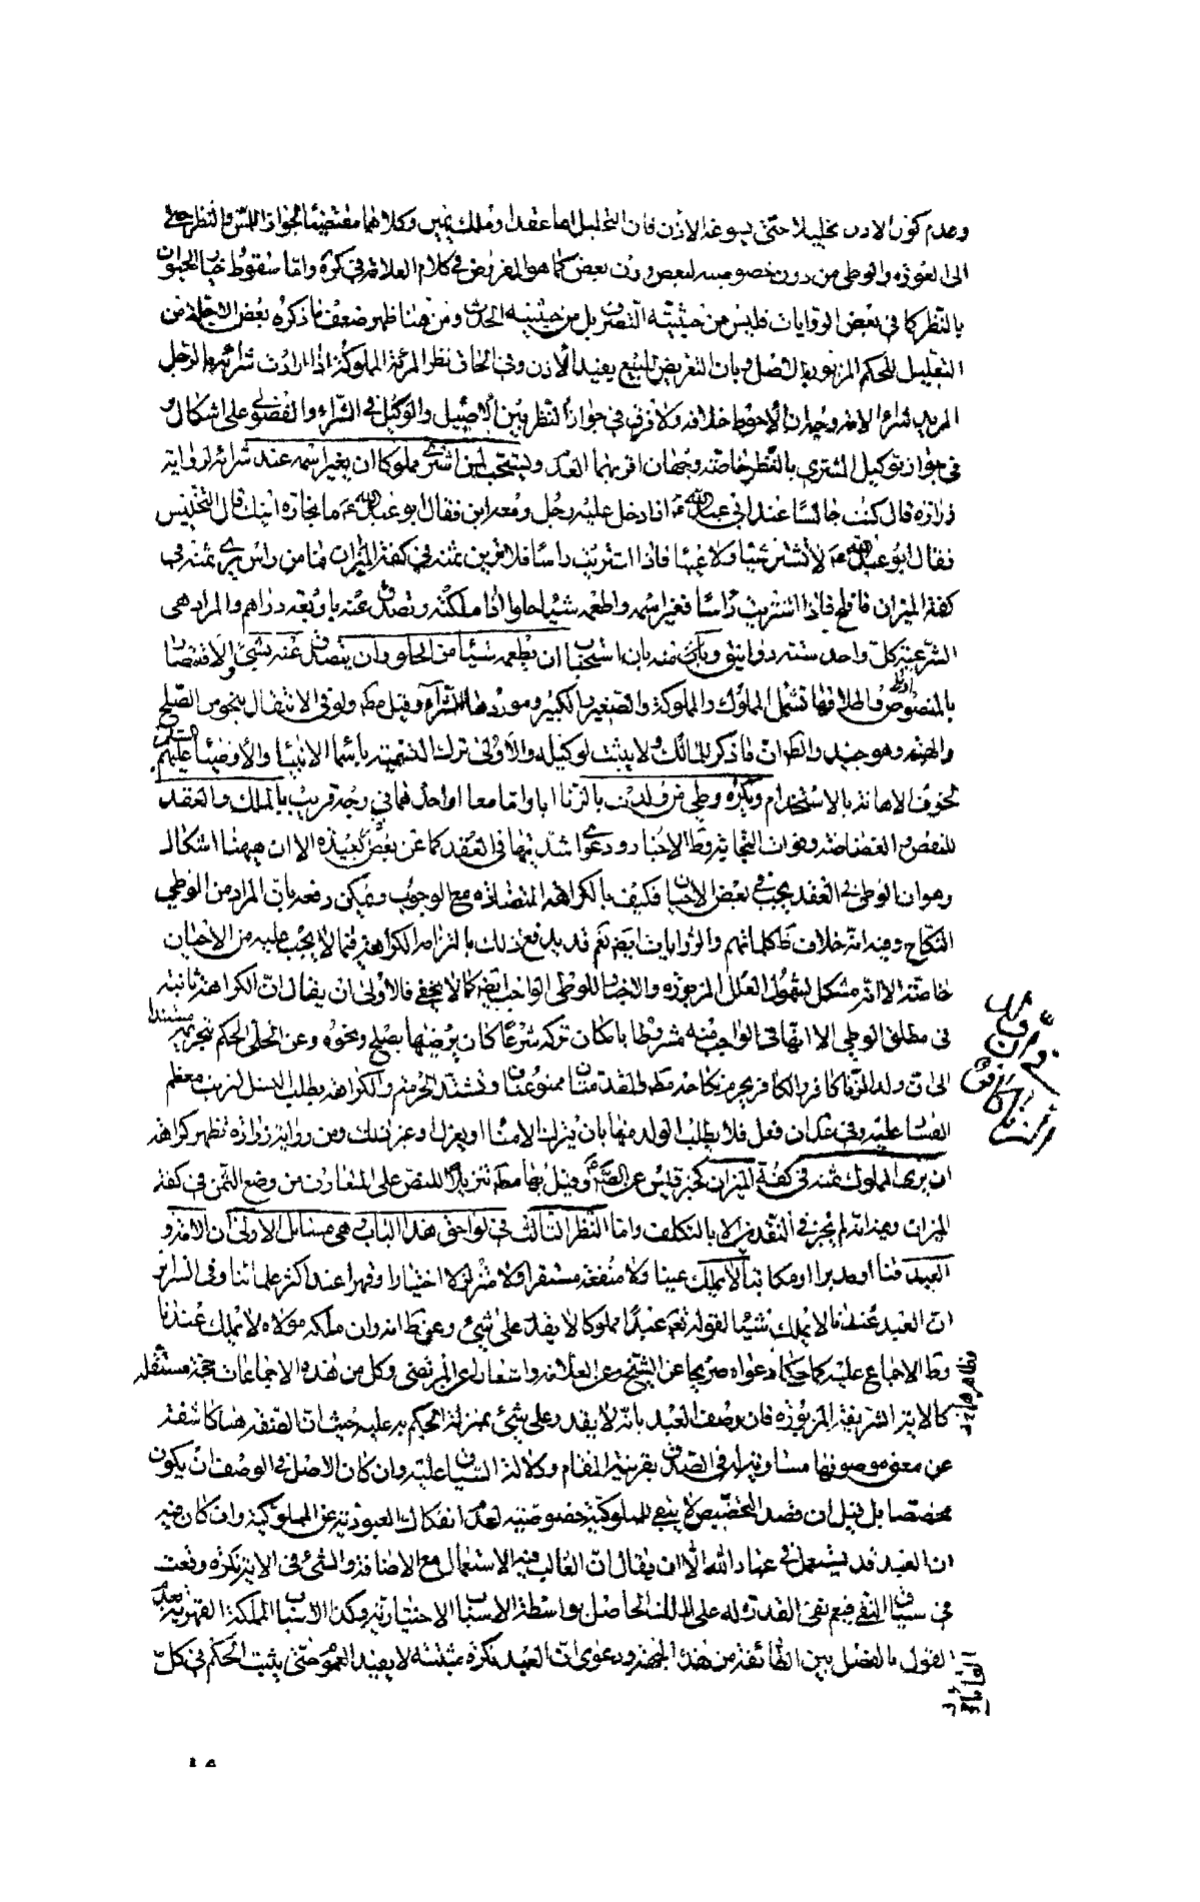 وعدم كون الاذن تحليلا حتى يسوغه الاذن فان التحليل اما عقد او ملك يمين وكلاهما مقتضيا لجواز اللمس والنظر حتى
الى العورة والوطى من دون خصوصية لبعض دون بعض كما هو المفروض في كلام العلامة في كره واما سقوط خيار الحيوان
بالنظر كما في بعض الروايات فليس من حيثية التصرف بل من حيثية الحدث ومن هنا ظهر ضعف ما ذكره بعض الاجلة من
التعليل للحكم المزبور بالاصل وبان التعريض للبيع يفيد الاذن وفي الحاق نظر المرئة المملوكة اذا ارادت شرائه بالرجل
المريد شراء الامة وجهان الاحوط خلافه ولا فرق في جواز النظر بين الاصيل والوكيل في الشراء والفضولى على اشكال و
في جواز توكيل المشترى بالنظر خاصة وجهان اقربهما العدم ويستحب لمن اشترى مملوكا ان يغير اسمه عند شرائه لرواية
زرارة قال كنت جالسا عند ابي عبد الله ع اذا دخل عليه رجل ومعه ابن فقال ابو عبد الله ع ما تجارة ابنك قال التنخيس
فقال ابو عبد الله ع لا تشتر شينا ولا عيبا فاذا اشتريت راسا فلا ترين ثمنه في كفة الميزان فما من راس يرى ثمنه في
كفة الميزان فافلح فاذا اشتريت راسا فغير اسمه واطعمه شيئا حلوا اذا ملكته وتصدق عنه باربعة دراهم والمراد هي
الشرعية كل واحد ستة دوانيق وبان منه بان استحباب ان يطعمه شيئا من الحلو وان يتصدق عنه بشئ والاقتصار
بالمنصوص اولى واطلاقها تشمل المملوك والمملوكة والصغير والكبير ومورد هما الشراء وقيل مط ولو في الانتقال بنحو من الصلح
والهبة وهو جيد والظ ان ما ذكر للمالك ولا يثبت لوكيله والاولى ترك التسمية باسماء الانبياء والأوصياء عليهم السلام
لخوف الاهانة بالاستخدام ويكره وطى من ولدت بالزنا ابا واما معا او احدهما في وجه قريب بالملك والعقد
للنقص والغضاضة وفوات النجابة وظ الاخبار ودعوى اشديتها في العقد كما عن بعض بعيدة الا ان هيهنا اشكال
وهو ان الوطى في العقد يجب في بعض الاحيان فكيف بالكراهة المتضادة مع الوجوب ويمكن دفعه بان المراد من الوطى
النكاح وفيه انه خلاف ظ كلماتهم والروايات ايض نعم قد يدفع ذلك بالتزام الكراهة فيما لا يجب عليه من الاحيان
خاصة الا انه مشكل لشمول العلل المزبورة والاخبار للوطى الواجب ايضا كما لا يخفى فالاولى ان يقال ان الكراهة ثابتة
في مطلق الوطى الا انها في الواجب منه مشروطا بامكان تركه شرعا كان يرضيها بصلح ونحوه وعن الحلى الحكم بتحريمه مستندا
الى ان ولد الزنا كافر والكافر يحرم نكاحه مط والمقدمتان ممنوعتان وتشتد الحرمة والكراهة بطلب النسل لترتب معظم
الفساد عليه وفي ان فعل فلا يطلب الولد منها بان يترك الامناء او يعزل وعن ذلك ومن رواية زرارة تظهر كراهة
ان يرى المملوك ثمنه في كفة الميزان كخبر قيس عن الصادق ع وقيل بها مط تنزيلا للنص على المتعارف من وضع الثمن في كفة
الميزان وفيه انه لم يجز في النقد منه الا بالتكلف واما النظر الثالث في لواحق هذا الباب وهي مسائل الاولى ان الامة و
العبد قنا او مدبرا او مكاتبا لا يملك عينا ولا منفعة مستقرا ولا متزلزلا اختيارا وقهرا عند اكثر علمائنا وفي السرائر
ان العبد عندنا لا يملك شيئا لقوله تعم عبدا مملوكا لا يقدر على شئ وعن ط انه وان ملكه مولاه لا يملك عندنا
وظ الاجماع عليه كما حكيا دعواه صريحا عن الشيخ وعن العلامة واشعارا عن المرتضى وكل من هذه الاجماعات حجة مستقلة
كالاية الشريفة المزبورة فان وصف العبد بانه لا يقدر على شئ بمنزلة الحكم به عليه حيث ان الصفة هنا كاشفة
عن معنى موصوفها مساوية له في الصدق بقرينة المقام ودلالة السياق عليه وان كان الاصل في الوصف ان يكون
مخصصا بل قيل ان قصد التخصيص لا ينبغي للمملوكية خصوصية لعدم انفكاك العبودية عن المملوكية وان كان فيه
ان العبد قد يستعمل في عباد الله الا ان يقال ان الغالب فيه الاستعمال مع الاضافة والشئ في الاية نكرة وقعت
في سياق النفى فيعم نفى القدرة له على الملك الحاصل بواسطة الاسباب الاختيارية وكذا الاسباب المملكة القهرية بعدم
القول بالفصل بين الطائفة من هذه الجهة ودعوى ان العبد نكرة مثبتة لا يفيد العموم حتى يثبت الحكم في كل